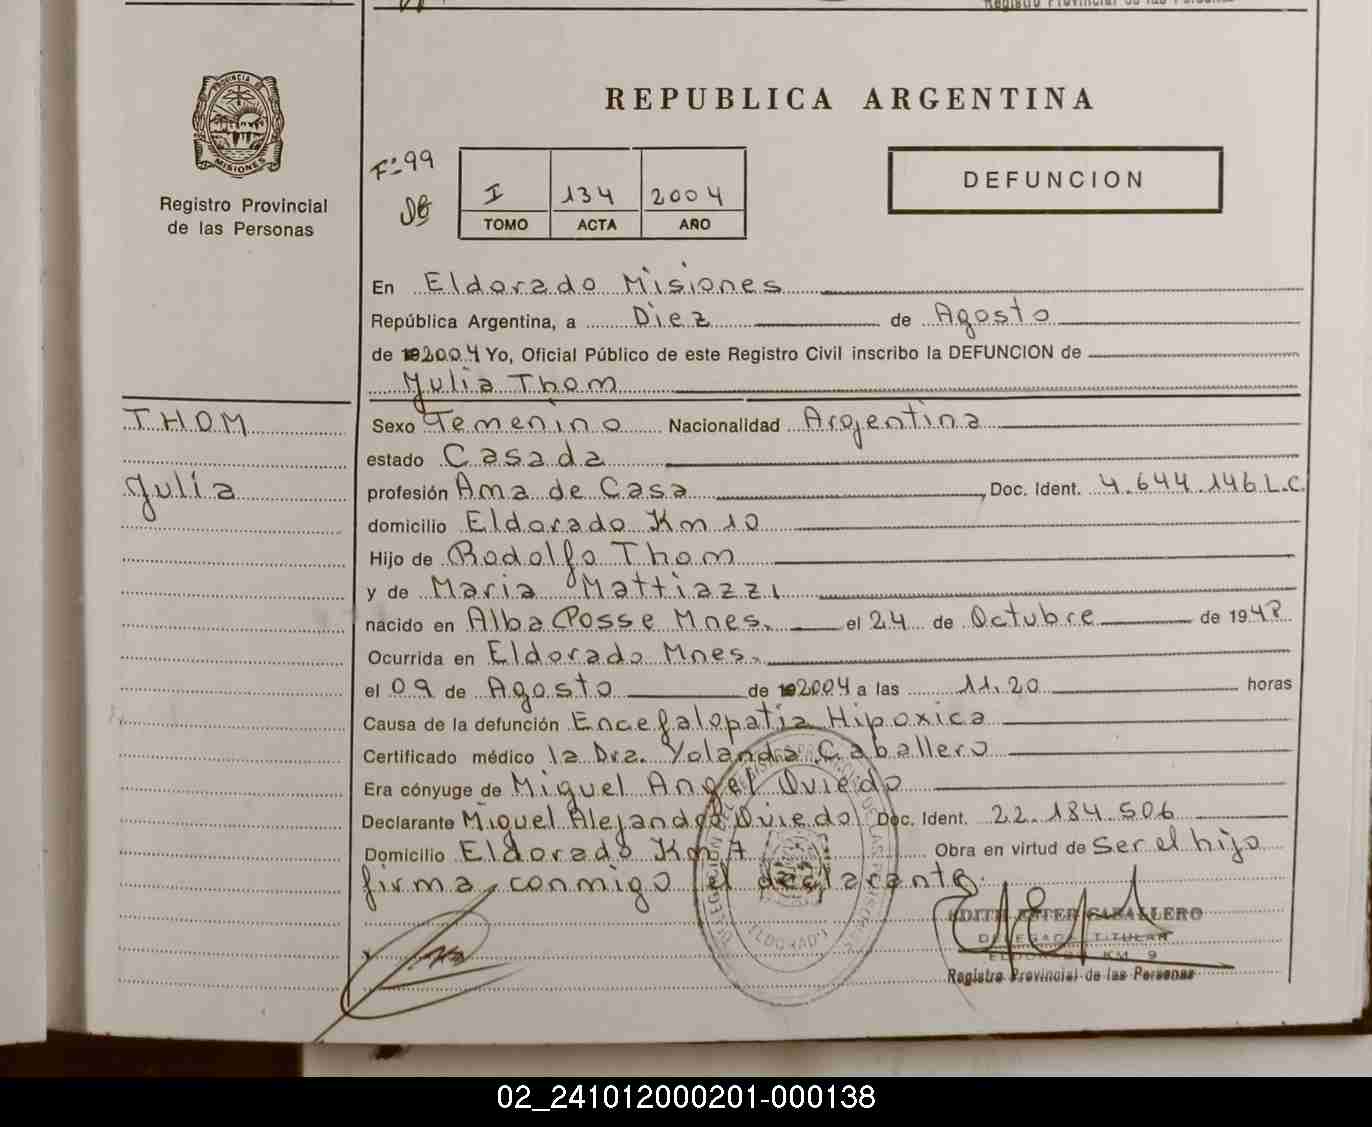 Registro Provincial de las Personas
PROVINCIA DE
MISIONES
Registro Provincial
de las Personas
REPUBLICA ARGENTINA
Fº 99
I 134 2004
TOMO ACTA AÑO
DEFUNCION
En Eldorado Misiones
República Argentina, a Diez de Agosto
de 2004 Yo, Oficial Público de este Registro Civil inscribo la DEFUNCION de
Julia Thom
THOM
Julia
Sexo Femenino Nacionalidad Argentina
estado Casada
profesión Ama de Casa Doc. Ident. 4.644.146 L.C.
domicilio Eldorado Km 10
Hijo de Rodolfo Thom
y de Maria Mattiazzi
nacido en Alba Posse Mnes. el 24 de Octubre de 194
Ocurrida en Eldorado Mnes.
el 09 de Agosto de 2004 a las 11.20 horas
Causa de la defunción Encefalopatia Hipoxica
Certificado médico la Dra. Yolanda Caballero
Era cónyuge de Miguel Angel Oviedo
Declarante Miguel Alejandro Oviedo Doc. Ident. 22.184.506
Domicilio Eldorado Km 7 Obra en virtud de Ser el hijo
firma conmigo el declarante.
ELDORADO
EDITH ESTER CABALLERO
DELEGADA TITULAR
ELDORADO KM. 9
Registro Provincial de las Personas
02_241012000201-000138